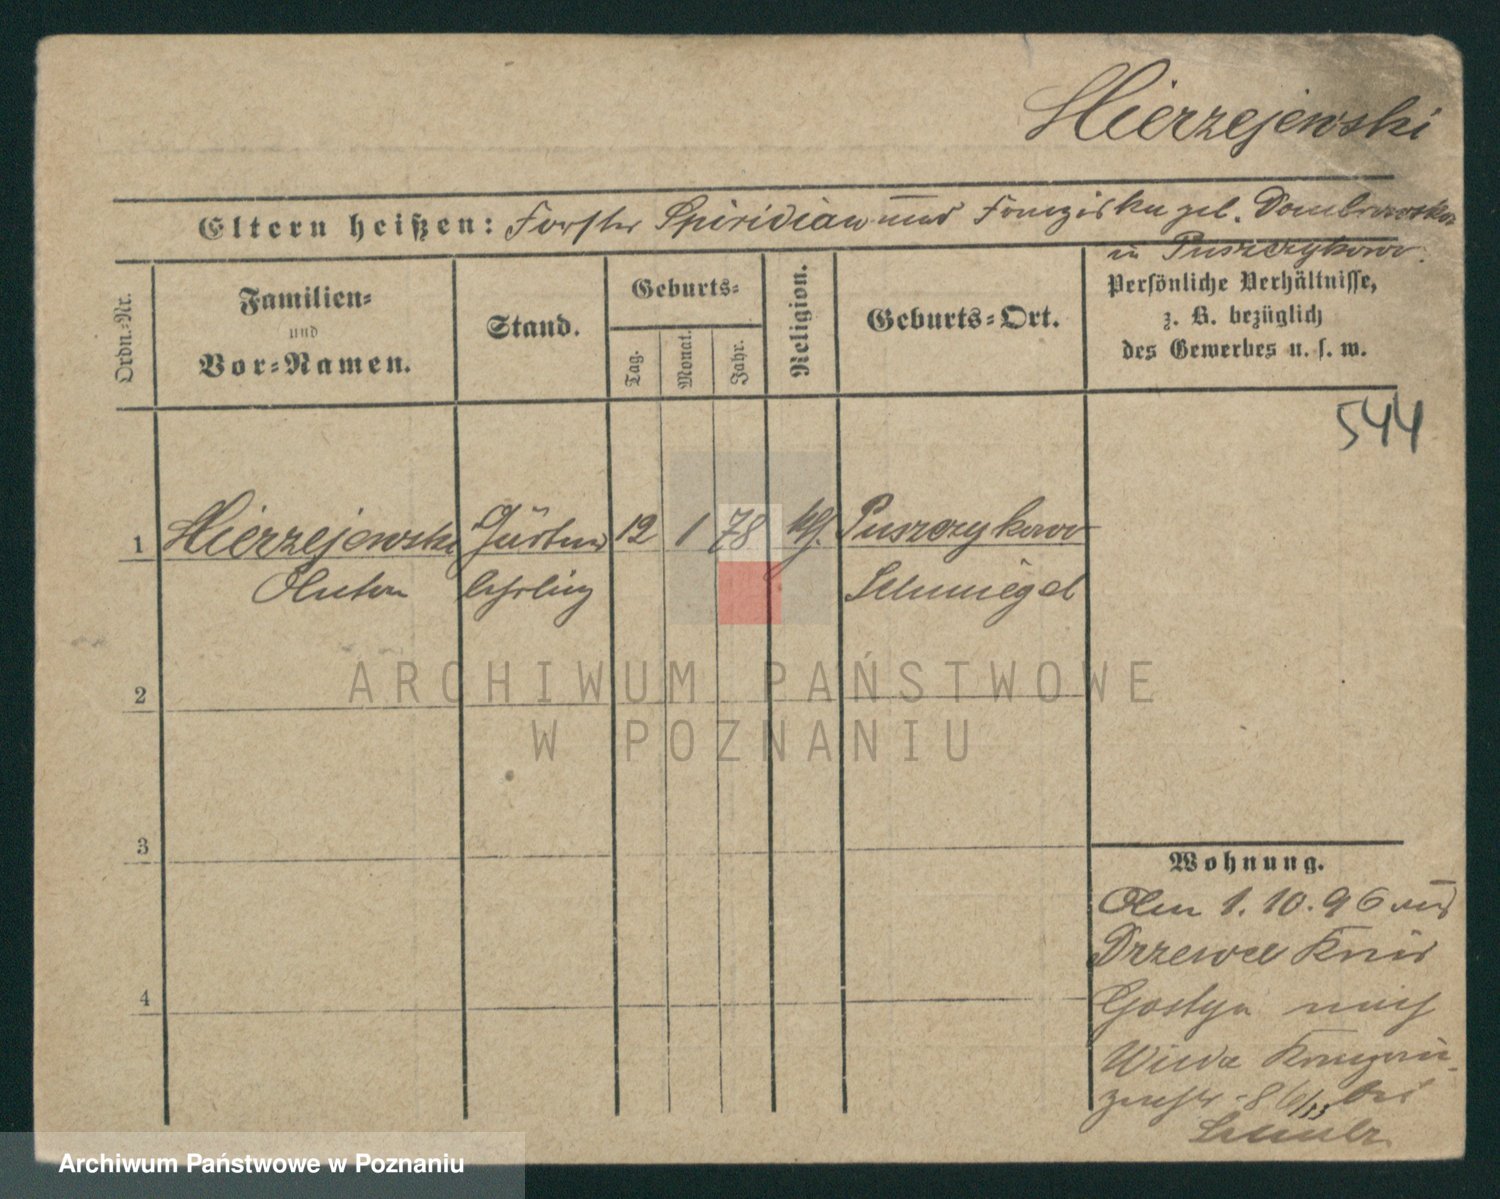 Hierzejewski
Eltern heißen: Forster Spiridian und Franziska geb. Dombrowska
in Puszczykowo.
Ordn.-Nr.
Familien-
und
Vor-Namen.
Stand.
Geburts-
Tag.
Monat.
Jahr.
Religion.
Geburts-Ort.
Persönliche Verhältnisse,
z. B. bezüglich
des Gewerbes u. s. w.
544
1 Hierzejewski Gärtner 12 1 78 kth. Puszczykowo
Anton lehrling Schmiegel
2
3
4
Wohnung.
Am 1.10.96 aus
Drzewce Kreis
Gostyn nach
Wilda Kronprin-
zenstr. 8 bei
ARCHIWUM PAŃSTWOWE
W POZNANIU
Archiwum Państwowe w Poznaniu